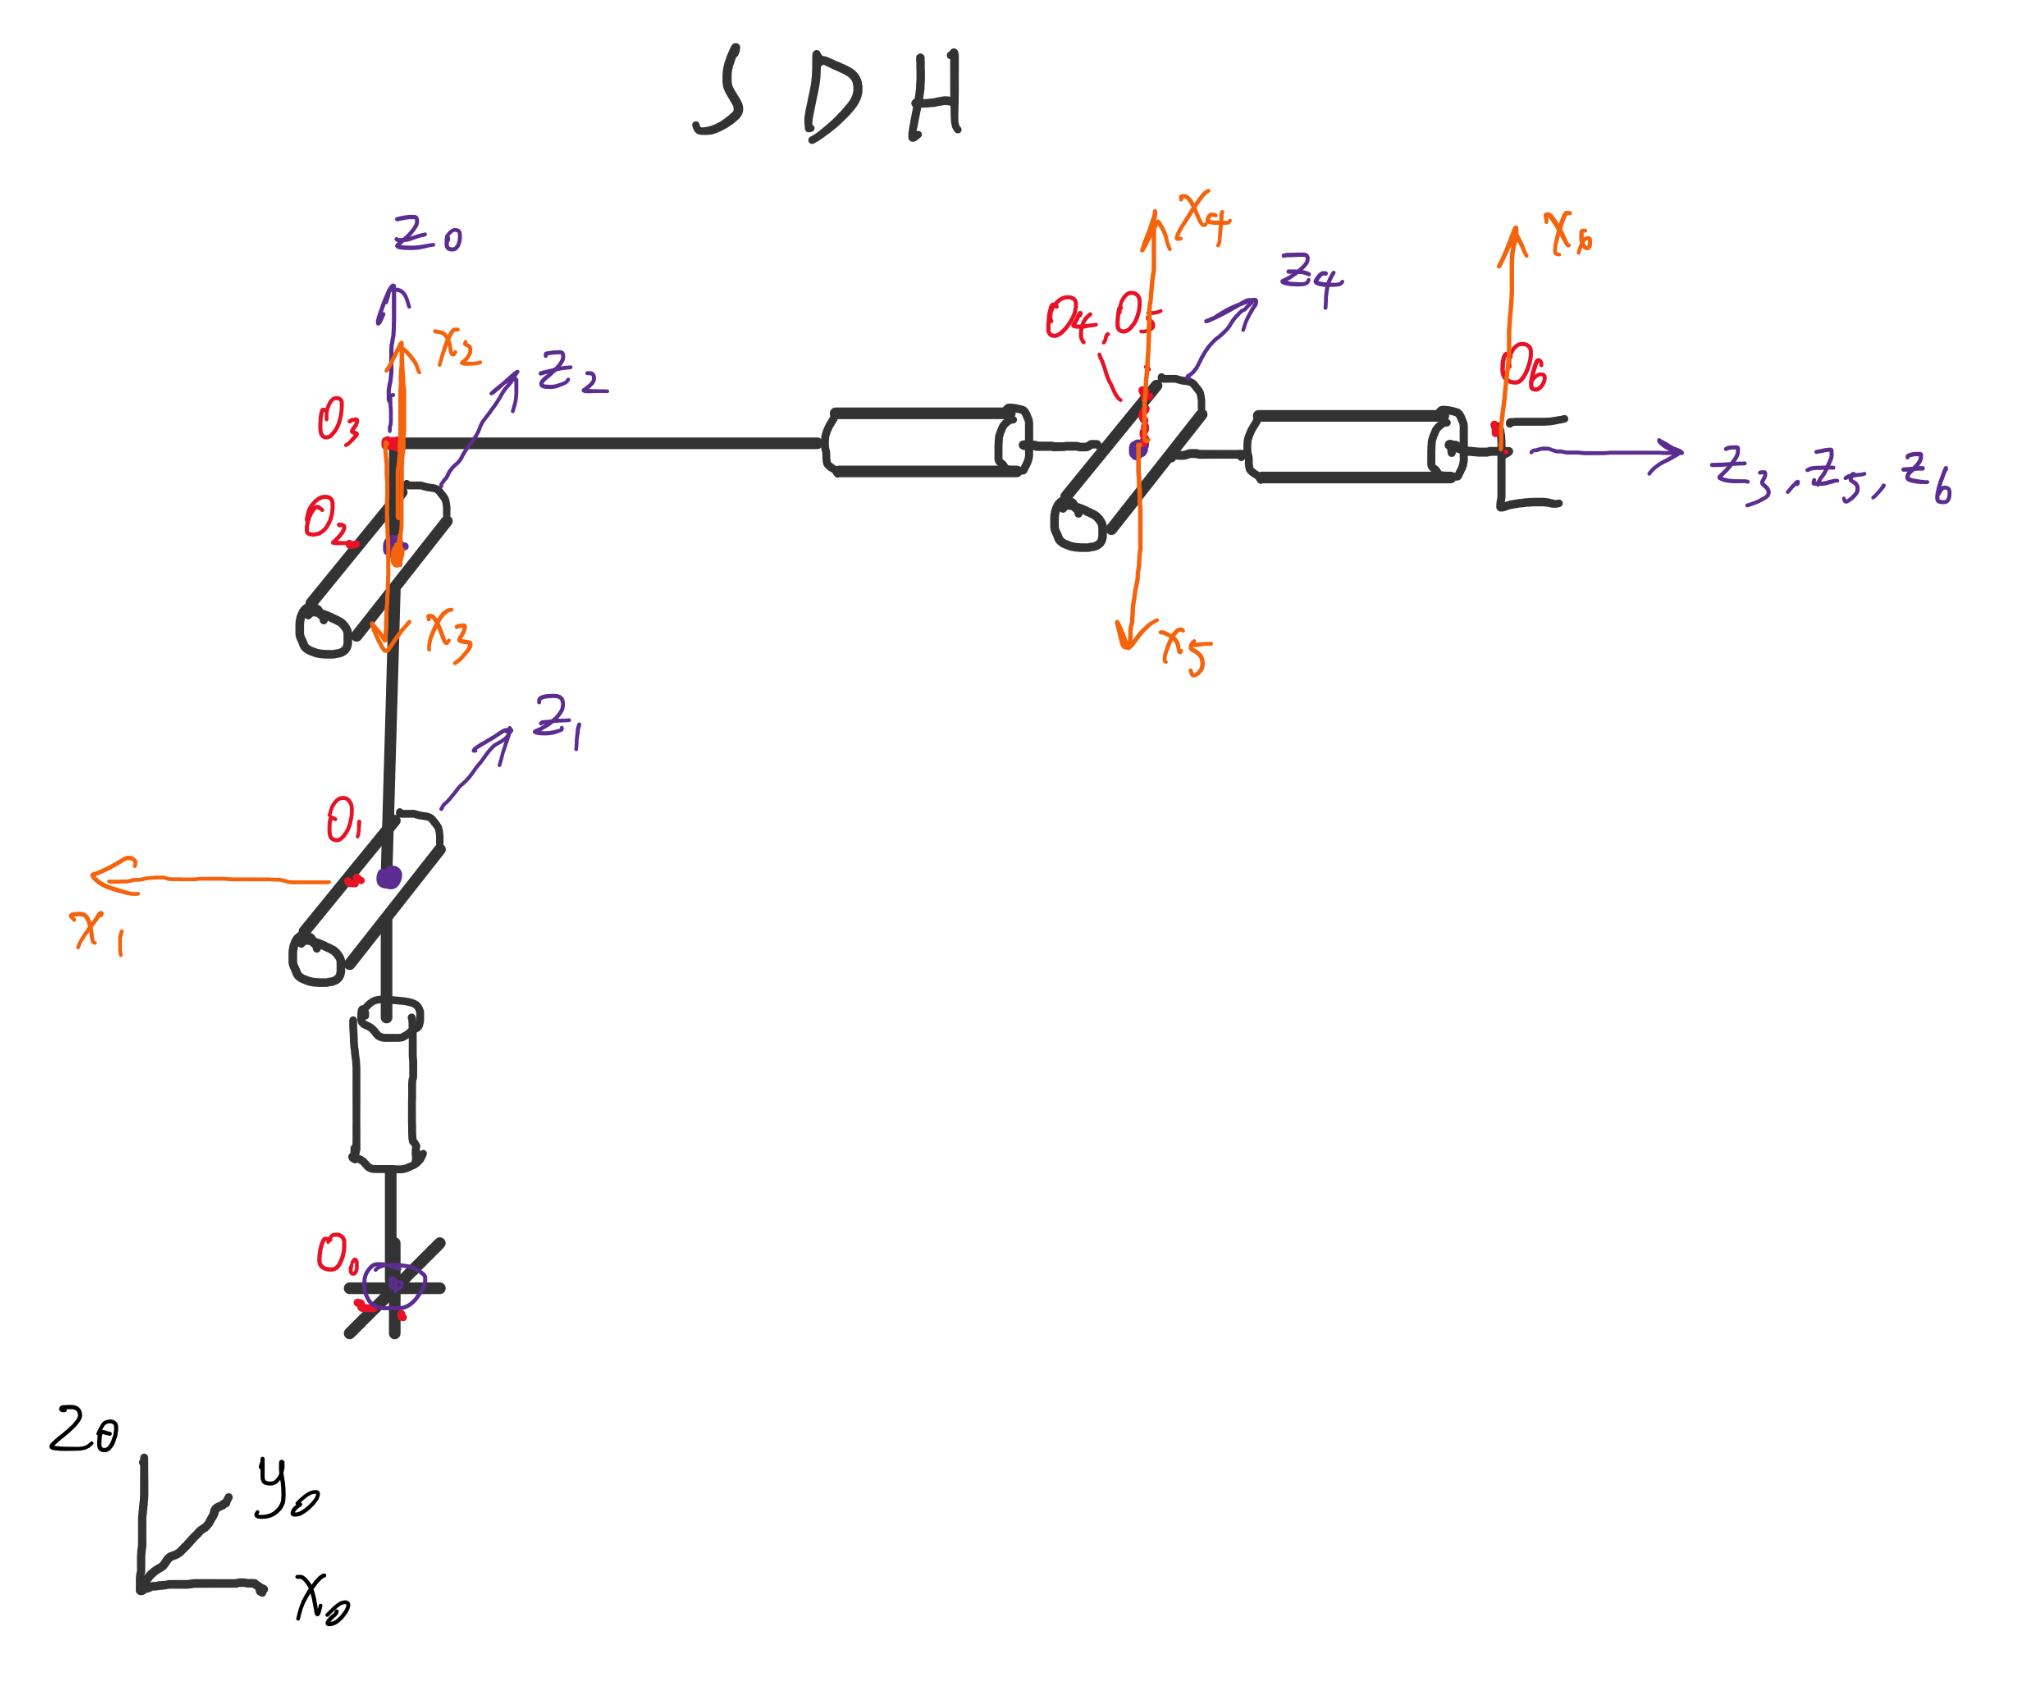 S D H
z0
x2
z2
O3
O2
x3
x4
z4
O4, O5
x6
O6
z3, z5, z6
x5
z1
O1
x1
O0
z0
y0
x0